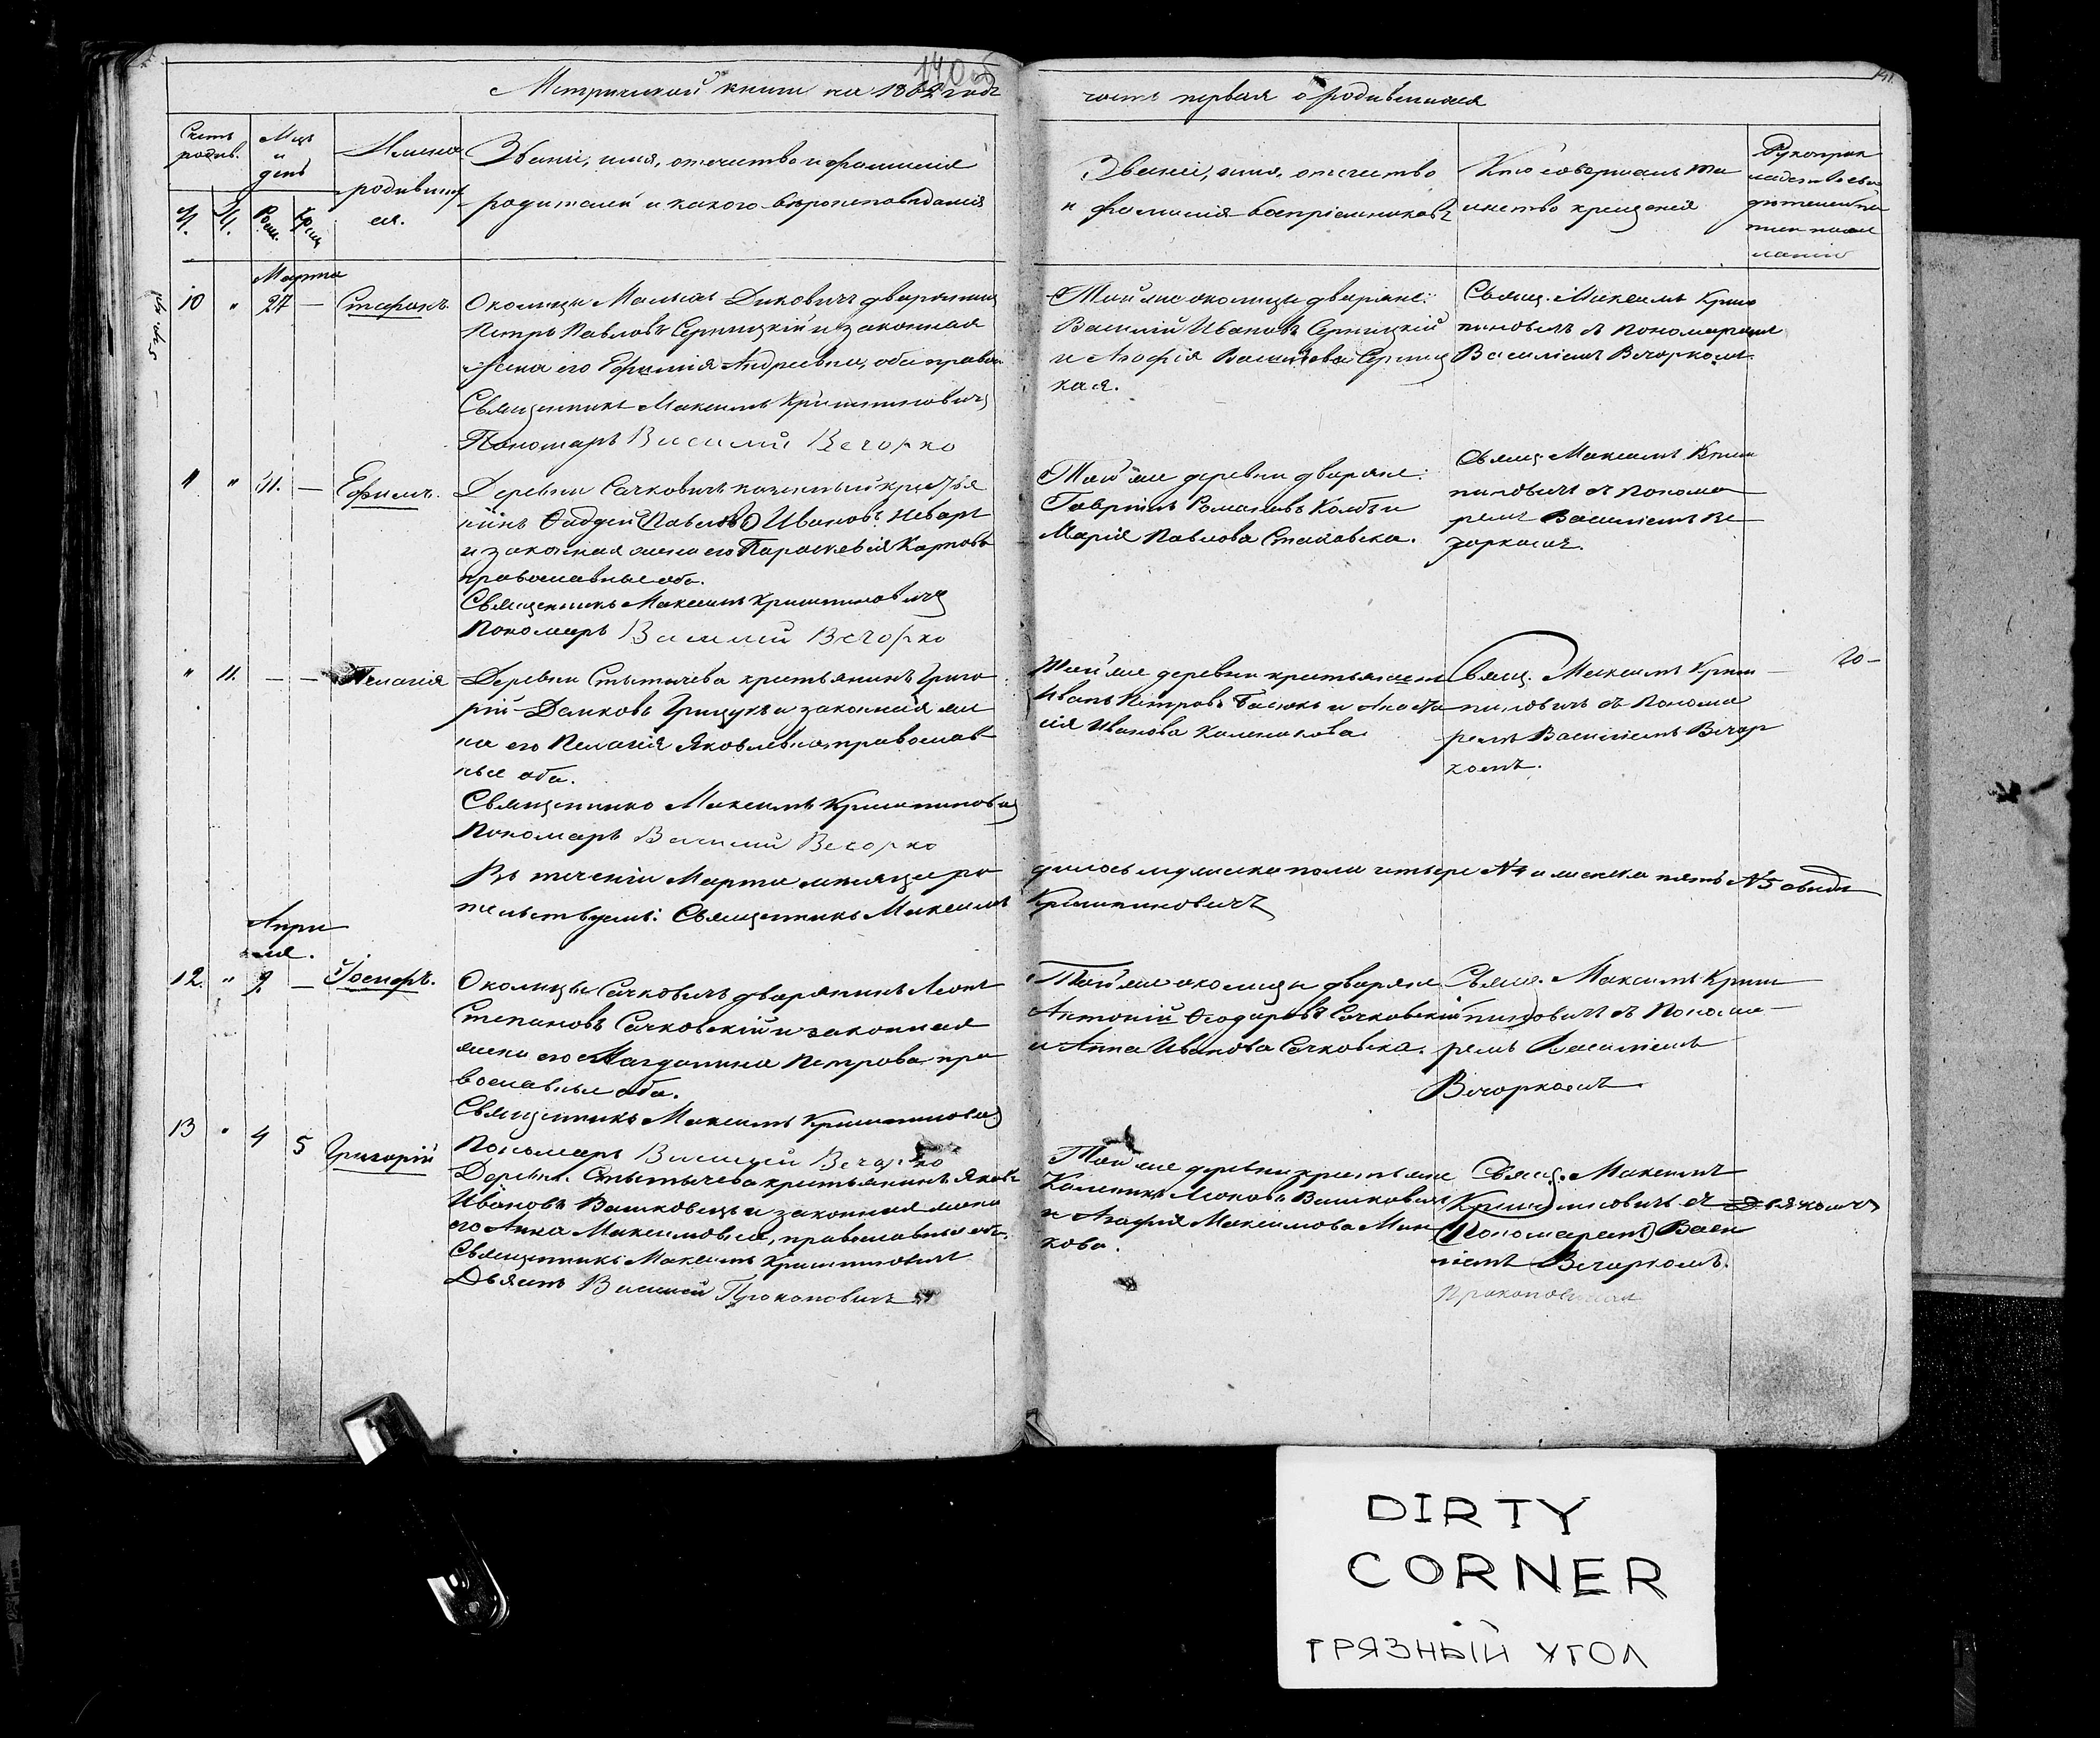 140 об
Метрической книги на 1862 годъ
часть первая о родившихся
Счетъ родив.
Мцъ и день
М.
Ж.
Рож.
Крещ
Имена родившихся.
Званіе, имя, отчество и фамилія
родителей и какого вероисповѣданія
Званіе, имя, отчество
и фамилія воспріемниковъ
Кто совершалъ та
инство крещенія
Рукоприк
Марта
10 " 27 — Стефанъ.
Околицы Малыхъ Диковичъ дворянинъ
Петръ Павловъ Серницкій и законная
жена его Ефимія Андреевна, оба правос.
Священникъ Максимъ Криштиновичъ
Пономарь Василій Вечорко
Той же околицы дворяне:
Василій Ивановъ Серницкій
и Агафія Васильева Серниц
кая.
Свящ. Максимъ Кришти
новичъ съ пономаремъ
Василіемъ Вечоркомъ
11 " 11. — Ефимъ.
Деревни Сачковичъ казенный крестья
нинъ Фаддей (Павловъ) Ивановъ
и законная жена его Параскевія Карпова
православные оба.
Священникъ Максимъ Криштиновичъ
Пономарь Василій Вечорко
Той же деревни дворяне:
Гавріилъ Романовъ Колбъ и
Марія Павлова
Свящ. Максимъ Кришти
пиновичъ съ понома
ремъ Василіемъ Ве
чоркомъ.
" 11. — — Пелагія
Деревни Стытычева крестьянинъ Григо
рій Демковъ Грицукъ и законная же
на его Пелагія Яковлевна православ
ные оба.
Священникъ Максимъ Криштиновичъ
Пономарь Василій Вечорко
Той же деревни крестьяне
Иванъ Петровъ Басюкъ и Анаста
сія Иванова Каленикова
Свящ. Максимъ Криш
пиновичъ съ понома
ремъ Василіемъ Вечор
комъ.
20 —
Въ теченіи Марта мѣсяца ро
дилось мужеска пола четыре № 4 и женска пять № 5 свидѣ
тельствуемъ: Священникъ Максимъ
Криштиновичъ
Апрѣ
ля.
12. " 2. — Іосифъ.
Околицы Сачковичъ дворянинъ Леонъ
Степановъ Сачковскій и законная
жена его Магдалина Петрова пра
вославные оба.
Священникъ Максимъ Криштиновичъ
Пономарь Василій Вечорко
Той же околицы дворяне
Антоній Феодоровъ Сачковскій
и Анна Иванова Сачковска.
Свящ. Максимъ Криш
пиновичъ съ понома
ремъ Василіемъ
Вечоркомъ
13 " 4 5 Григорій
Деревни Стытычева крестьянинъ Яковъ
Ивановъ Вашковецъ и законная жена
его Анна Максимовна, православные оба.
Священникъ Максимъ Криштиновичъ
Дьячекъ Василій Прокоповичъ
Той же деревни крестьяне
Каленикъ Леоновъ Вашковецъ
и Агафія Максимова Мин
кова.
Свящ. Максимъ
Криштиновичъ съ дьячкомъ
(Пономаремъ) Васи
ліемъ (Вечоркомъ).
Прокоповичемъ
DIRTY
CORNER
ГРЯЗНЫЙ УГОЛ